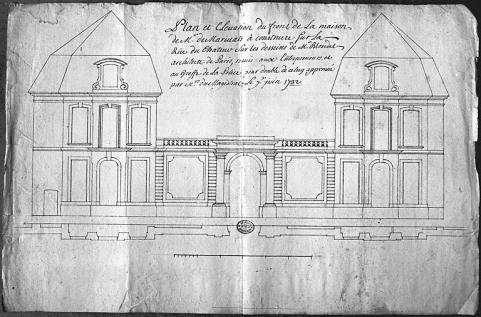 Plan et Elevation du front de La maison
de Mr. de à construire sur La
Rue du sur les desseins de Mr. Blondel
architecte de Paris, remis aux et
au Greffe de La Police pour double de celuy approuvé
par Mrs. du Magistrat le 7e juin 1732